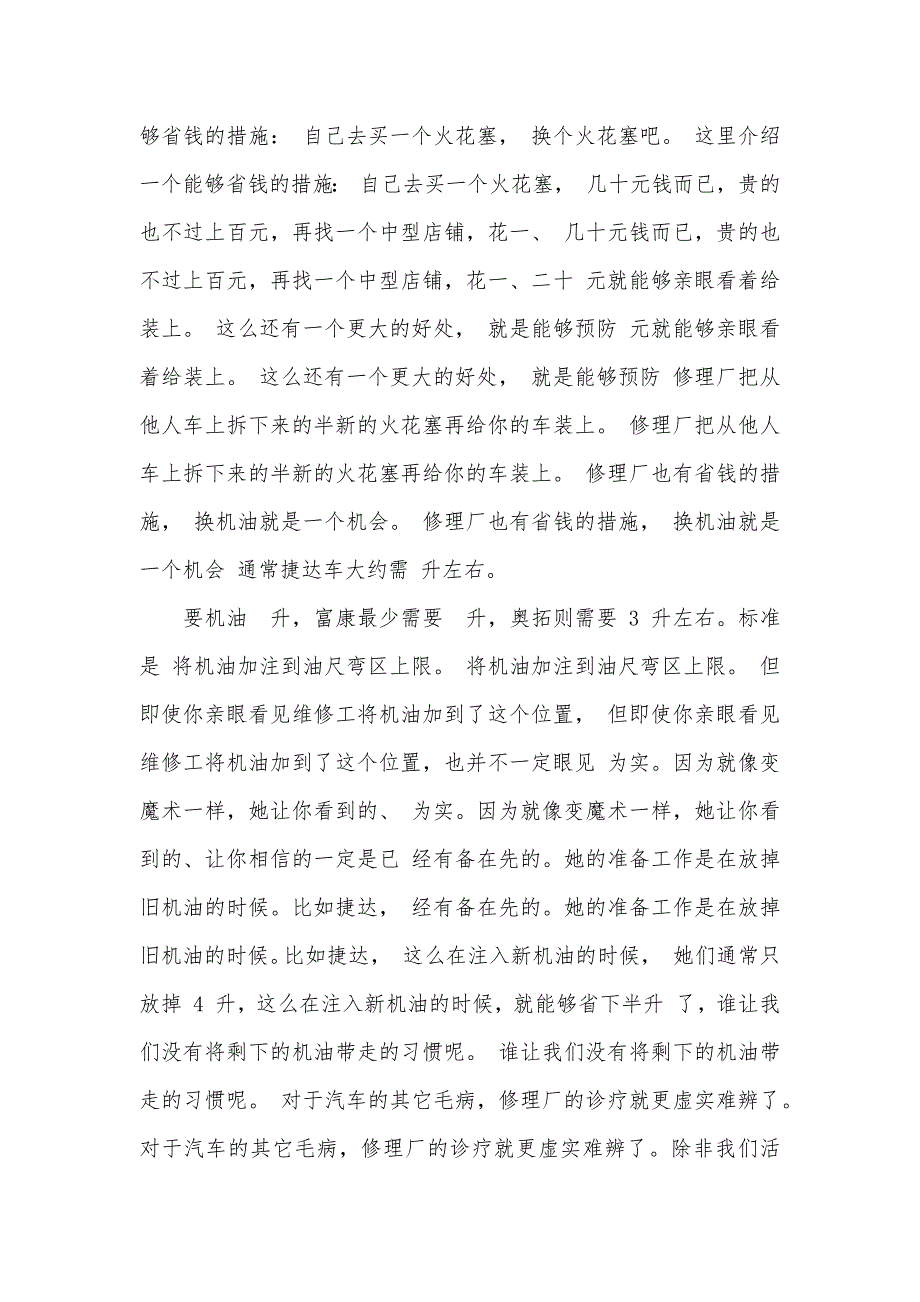 够省钱的措施： 自己去买一个火花塞， 换个火花塞吧。 这里介绍
一个能够省钱的措施： 自己去买一个火花塞， 几十元钱而已，贵的
也不过上百元，再找一个中型店铺，花一、 几十元钱而已，贵的也
不过上百元，再找一个中型店铺，花一、二十 元就能够亲眼看着给
装上。 这么还有一个更大的好处， 就是能够预防 元就能够亲眼看
着给装上。 这么还有一个更大的好处， 就是能够预防 修理厂把从
他人车上拆下来的半新的火花塞再给你的车装上。 修理厂把从他人
车上拆下来的半新的火花塞再给你的车装上。 修理厂也有省钱的措
施， 换机油就是一个机会。 修理厂也有省钱的措施， 换机油就是
一个机会 通常捷达车大约需 升左右。
要机油 升，富康最少需要 升，奥拓则需要 3 升左右。标准
是 将机油加注到油尺弯区上限。 将机油加注到油尺弯区上限。 但
即使你亲眼看见维修工将机油加到了这个位置， 但即使你亲眼看见
维修工将机油加到了这个位置，也并不一定眼见 为实。因为就像变
魔术一样，她让你看到的、 为实。因为就像变魔术一样，她让你看
到的、让你相信的一定是已 经有备在先的。她的准备工作是在放掉
旧机油的时候。比如捷达， 经有备在先的。她的准备工作是在放掉
旧机油的时候。比如捷达， 这么在注入新机油的时候， 她们通常只
放掉 4 升，这么在注入新机油的时候，就能够省下半升 了，谁让我
们没有将剩下的机油带走的习惯呢。 谁让我们没有将剩下的机油带
走的习惯呢。 对于汽车的其它毛病，修理厂的诊疗就更虚实难辨了。
对于汽车的其它毛病，修理厂的诊疗就更虚实难辨了。除非我们活